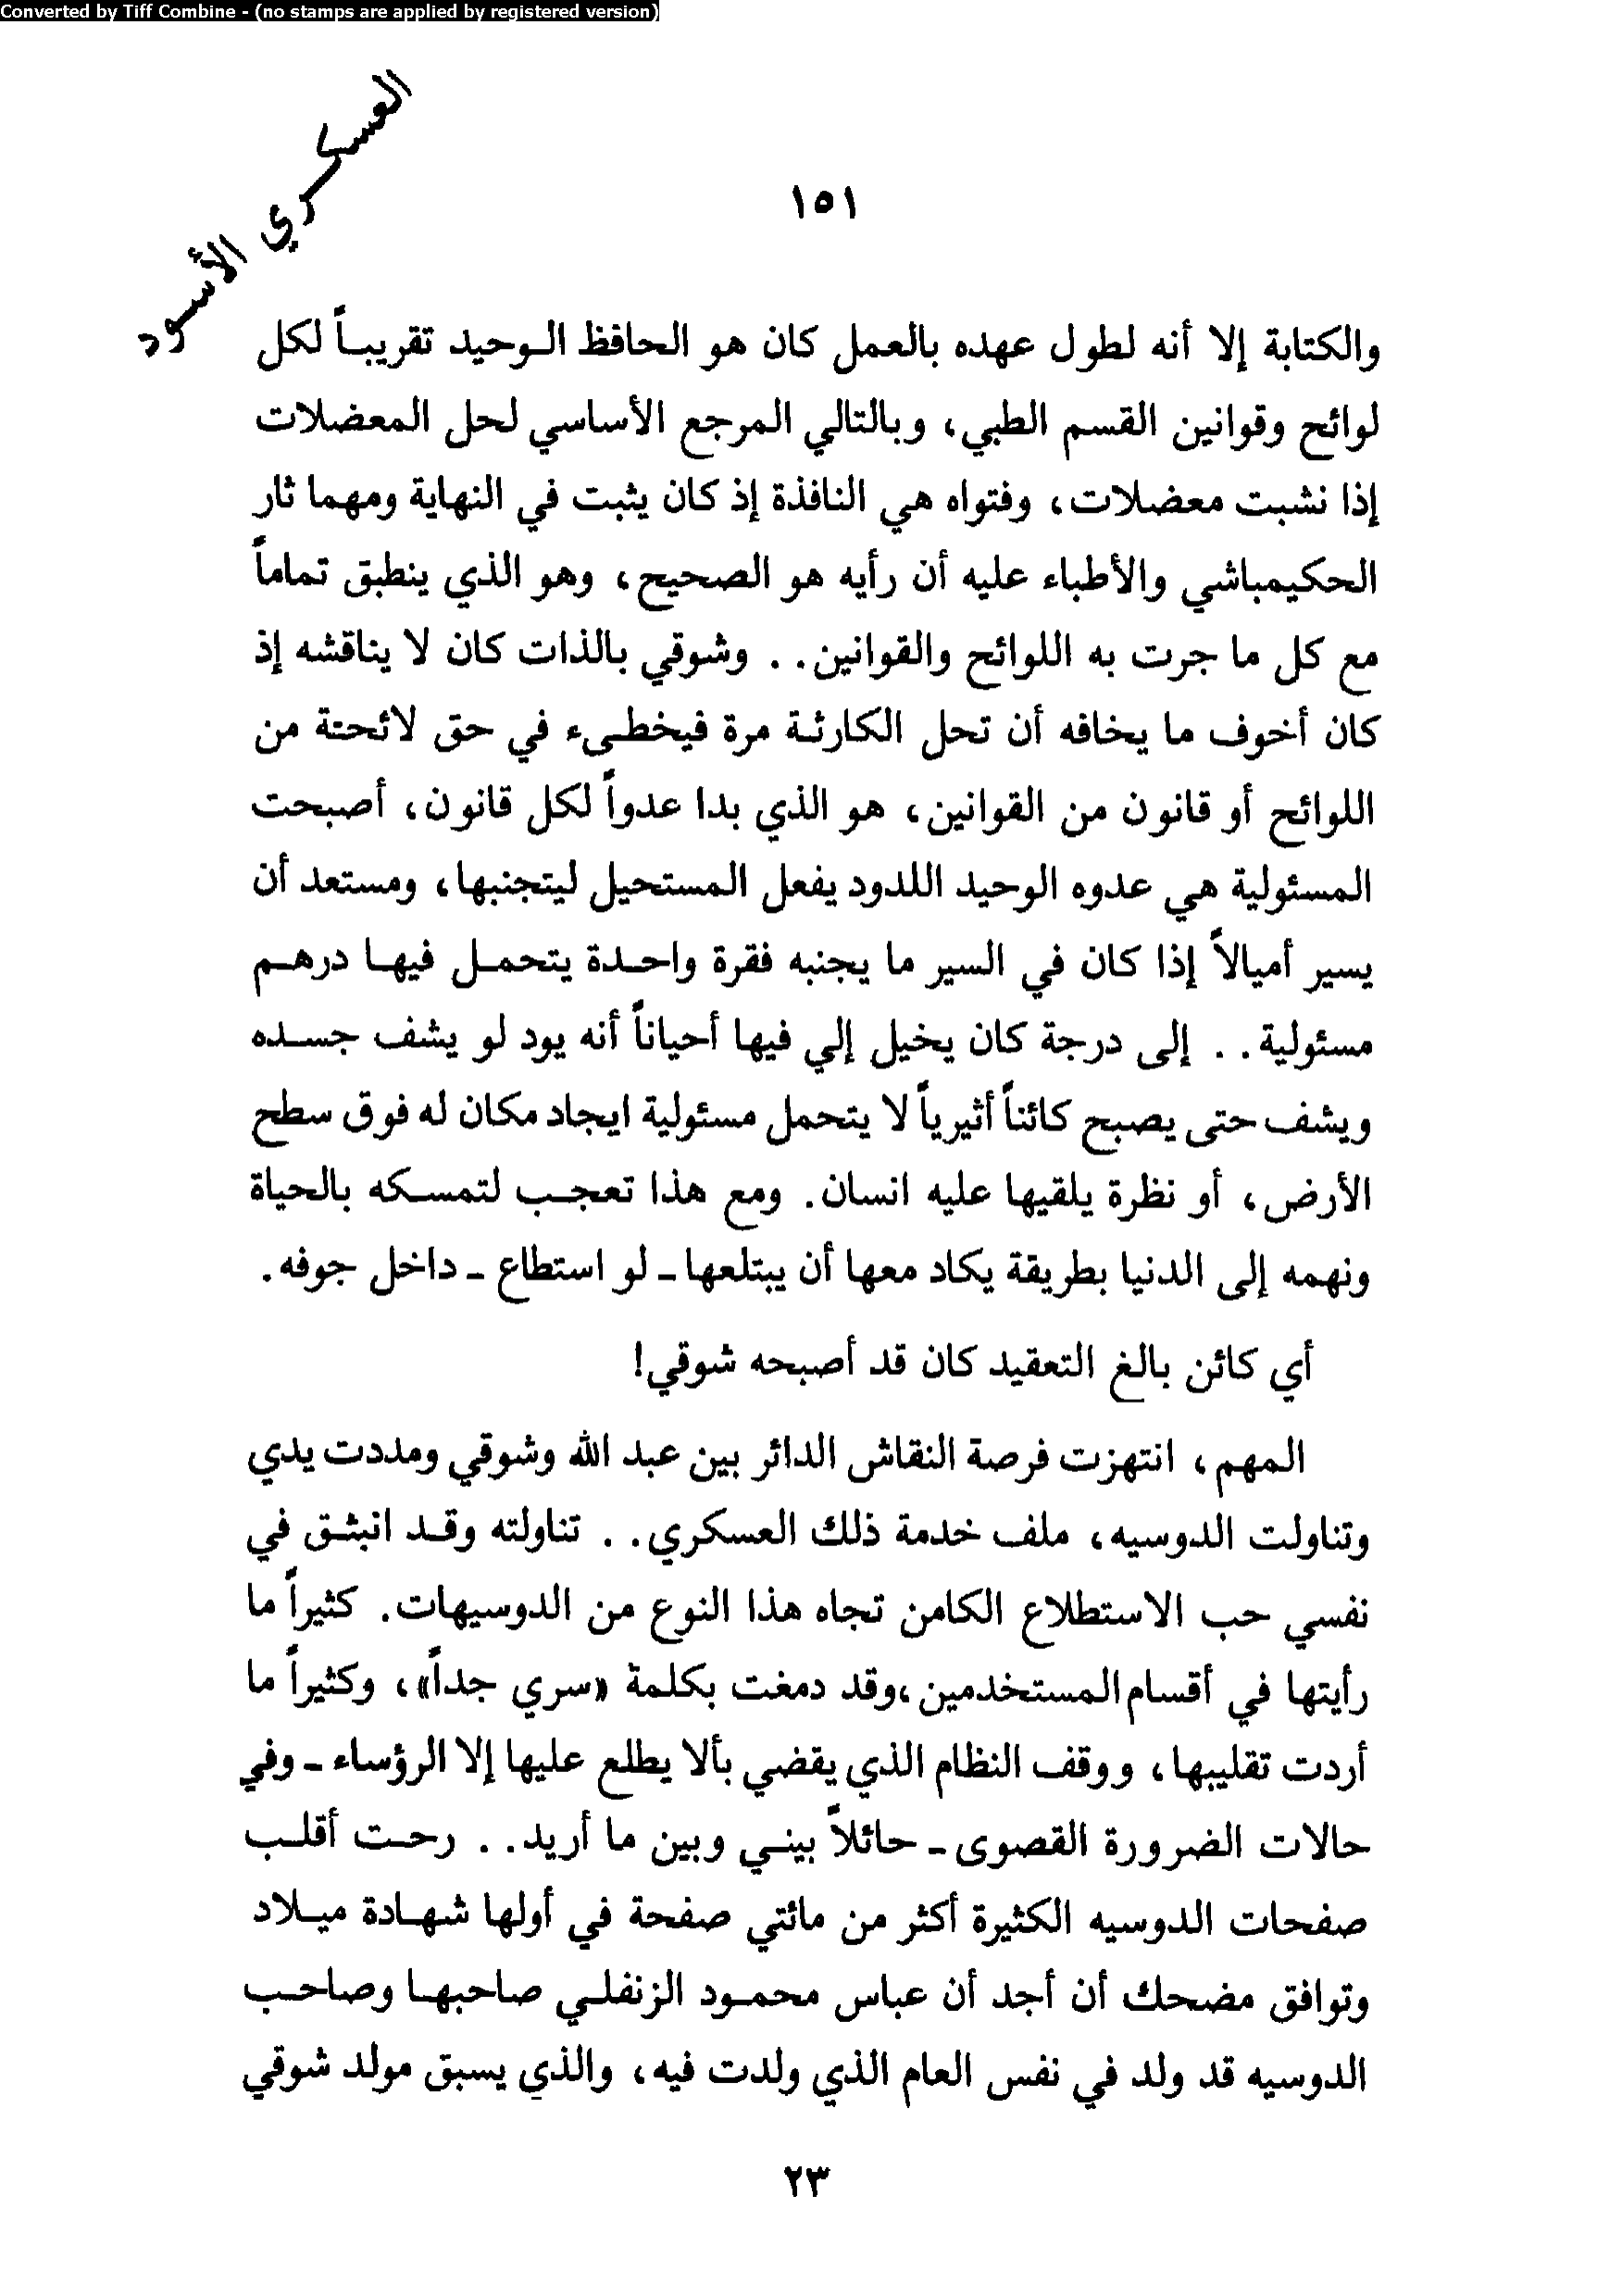 Converted by Tiff Combine - (no stamps are applied by registered version)
العسكري الأسود
١٥١
والكتابة إلا أنه لطول عهده بالعمل كان هو الحافظ الوحيد تقريباً لكل
لوائح وقوانين القسم الطبي، وبالتالي المرجع الأساسي لحل المعضلات
إذا نشبت معضلات، وفتواه هي النافذة إذ كان يثبت في النهاية ومهما ثار
الحكيمباشي والأطباء عليه أن رأيه هو الصحيح، وهو الذي ينطبق تماماً
مع كل ما جرت به اللوائح والقوانين. . وشوقي بالذات كان لا يناقشه إذ
كان أخوف ما يخافه أن تحل الكارثة مرة فيخطىء في حق لائحتة من
اللوائح أو قانون من القوانين، هو الذي بدا عدواً لكل قانون، أصبحت
المسئولية هي عدوه الوحيد اللدود يفعل المستحيل ليتجنبها، ومستعد أن
يسير أميالاً إذا كان في السير ما يجنبه فقرة واحدة يتحمل فيها درهم
مسئولية. . إلى درجة كان يخيل إلي فيها أحياناً أنه يود لو يشف جسده
ويشف حتى يصبح كائناً أثيرياً لا يتحمل مسئولية ايجاد مكان له فوق سطح
الأرض، أو نظرة يلقيها عليه انسان. ومع هذا تعجب لتمسكه بالحياة
ونهمه إلى الدنيا بطريقة يكاد معها أن يبتلعها ـ لو استطاع ـ داخل جوفه.
أي كائن بالغ التعقيد كان قد أصبحه شوقي!
المهم، انتهزت فرصة النقاش الدائر بين عبد الله وشوقي ومددت يدي
وتناولت الدوسيه، ملف خدمة ذلك العسكري. . تناولته وقد انبثق في
نفسي حب الاستطلاع الكامن تجاه هذا النوع من الدوسيهات. كثيراً ما
رأيتها في أقسام المستخدمين،وقد دمغت بكلمة «سري جداً»، وكثيراً ما
أردت تقليبها، ووقف النظام الذي يقضي بألا يطلع عليها إلا الرؤساء ـ وفي
حالات الضرورة القصوى ـ حائلاً بيني وبين ما أريد. . رحت أقلب
صفحات الدوسيه الكثيرة أكثر من مائتي صفحة في أولها شهادة ميلاد
وتوافق مضحك أن أجد أن عباس محمود الزنفلي صاحبها وصاحب
الدوسيه قد ولد في نفس العام الذي ولدت فيه، والذي يسبق مولد شوقي
٢٣